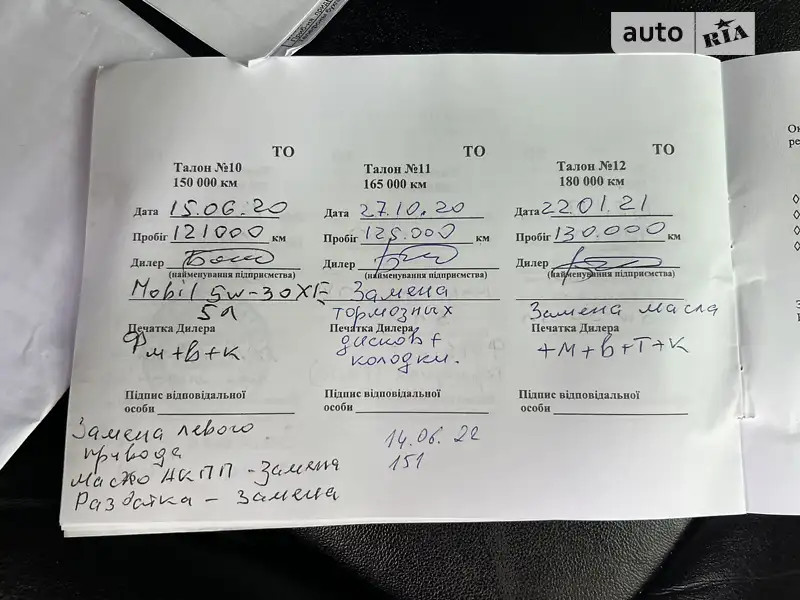 auto RIA
ТО
Талон №10
150 000 км
Дата 15.06.20
Пробіг 121000 км
Дилер
(найменування підприємства)
Mobil 5w-30
5л
Печатка Дилера
Ф м+в+к
Підпис відповідальної
особи
Замена левого
привода
масло АКПП - Замена
Раздатка - Замена
ТО
Талон №11
165 000 км
Дата 27.10.20
Пробіг 125.000 км
Дилер
(найменування підприємства)
Замена
тормозных
Печатка Дилера
дисков+
колодки.
Підпис відповідальної
особи
14.06.22
151
ТО
Талон №12
180 000 км
Дата 22.01.21
Пробіг 130.000 км
Дилер
(найменування підприємства)
Замена масла
Печатка Дилера
+м+в+т+к
Підпис відповідальної
особи